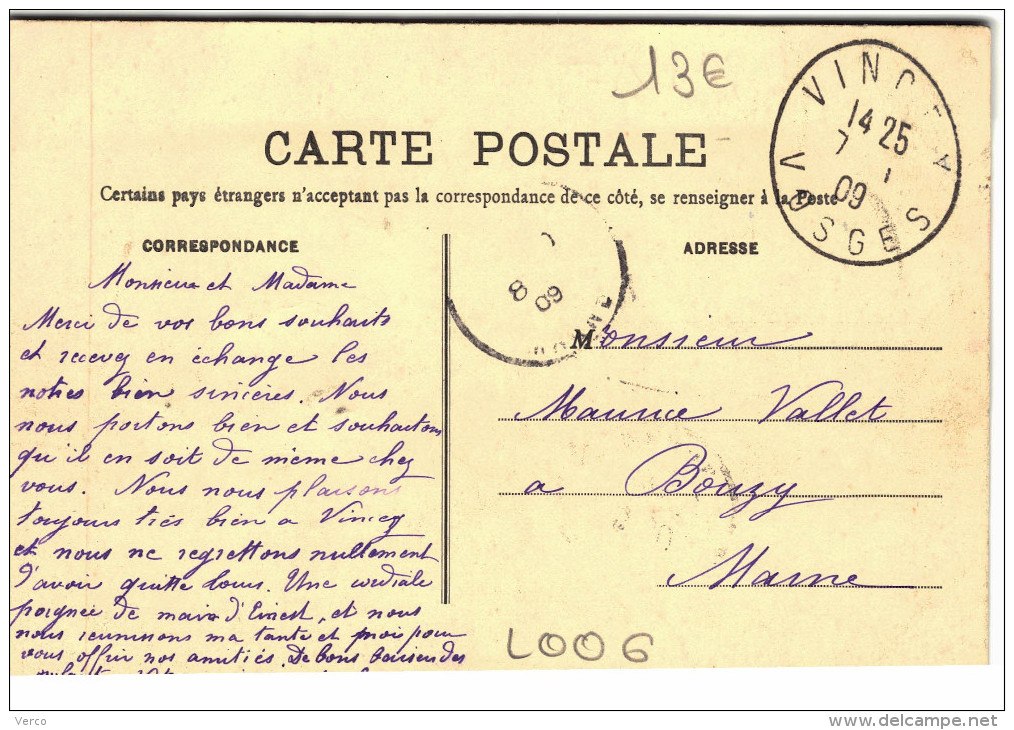 13€
CARTE POSTALE
Certains pays étrangers n'acceptent pas la correspondance de ce côté, se renseigner à la Poste
VOSGES
14 25
7 1
09
CORRESPONDANCE
ADRESSE
8
09
Monsieur et Madame
Merci de vos bons souhaits
et recevez en échange les
notres bien sincères. Nous
nous portons bien et souhaitons
qu'il en soit de même chez
vous. Nous nous plaisons
toujours très bien a Vincey
et nous ne regrettons nullement
d'avoir quitté Une cordiale
poignée de main d'Ernest, et nous
nous reunissons ma tante et moi pour
vous offrir nos amitiés. De bons baisers des
Monsieur
Maurice Vallet
a Bouzy
Marne
L006
Verco
delcampe.net